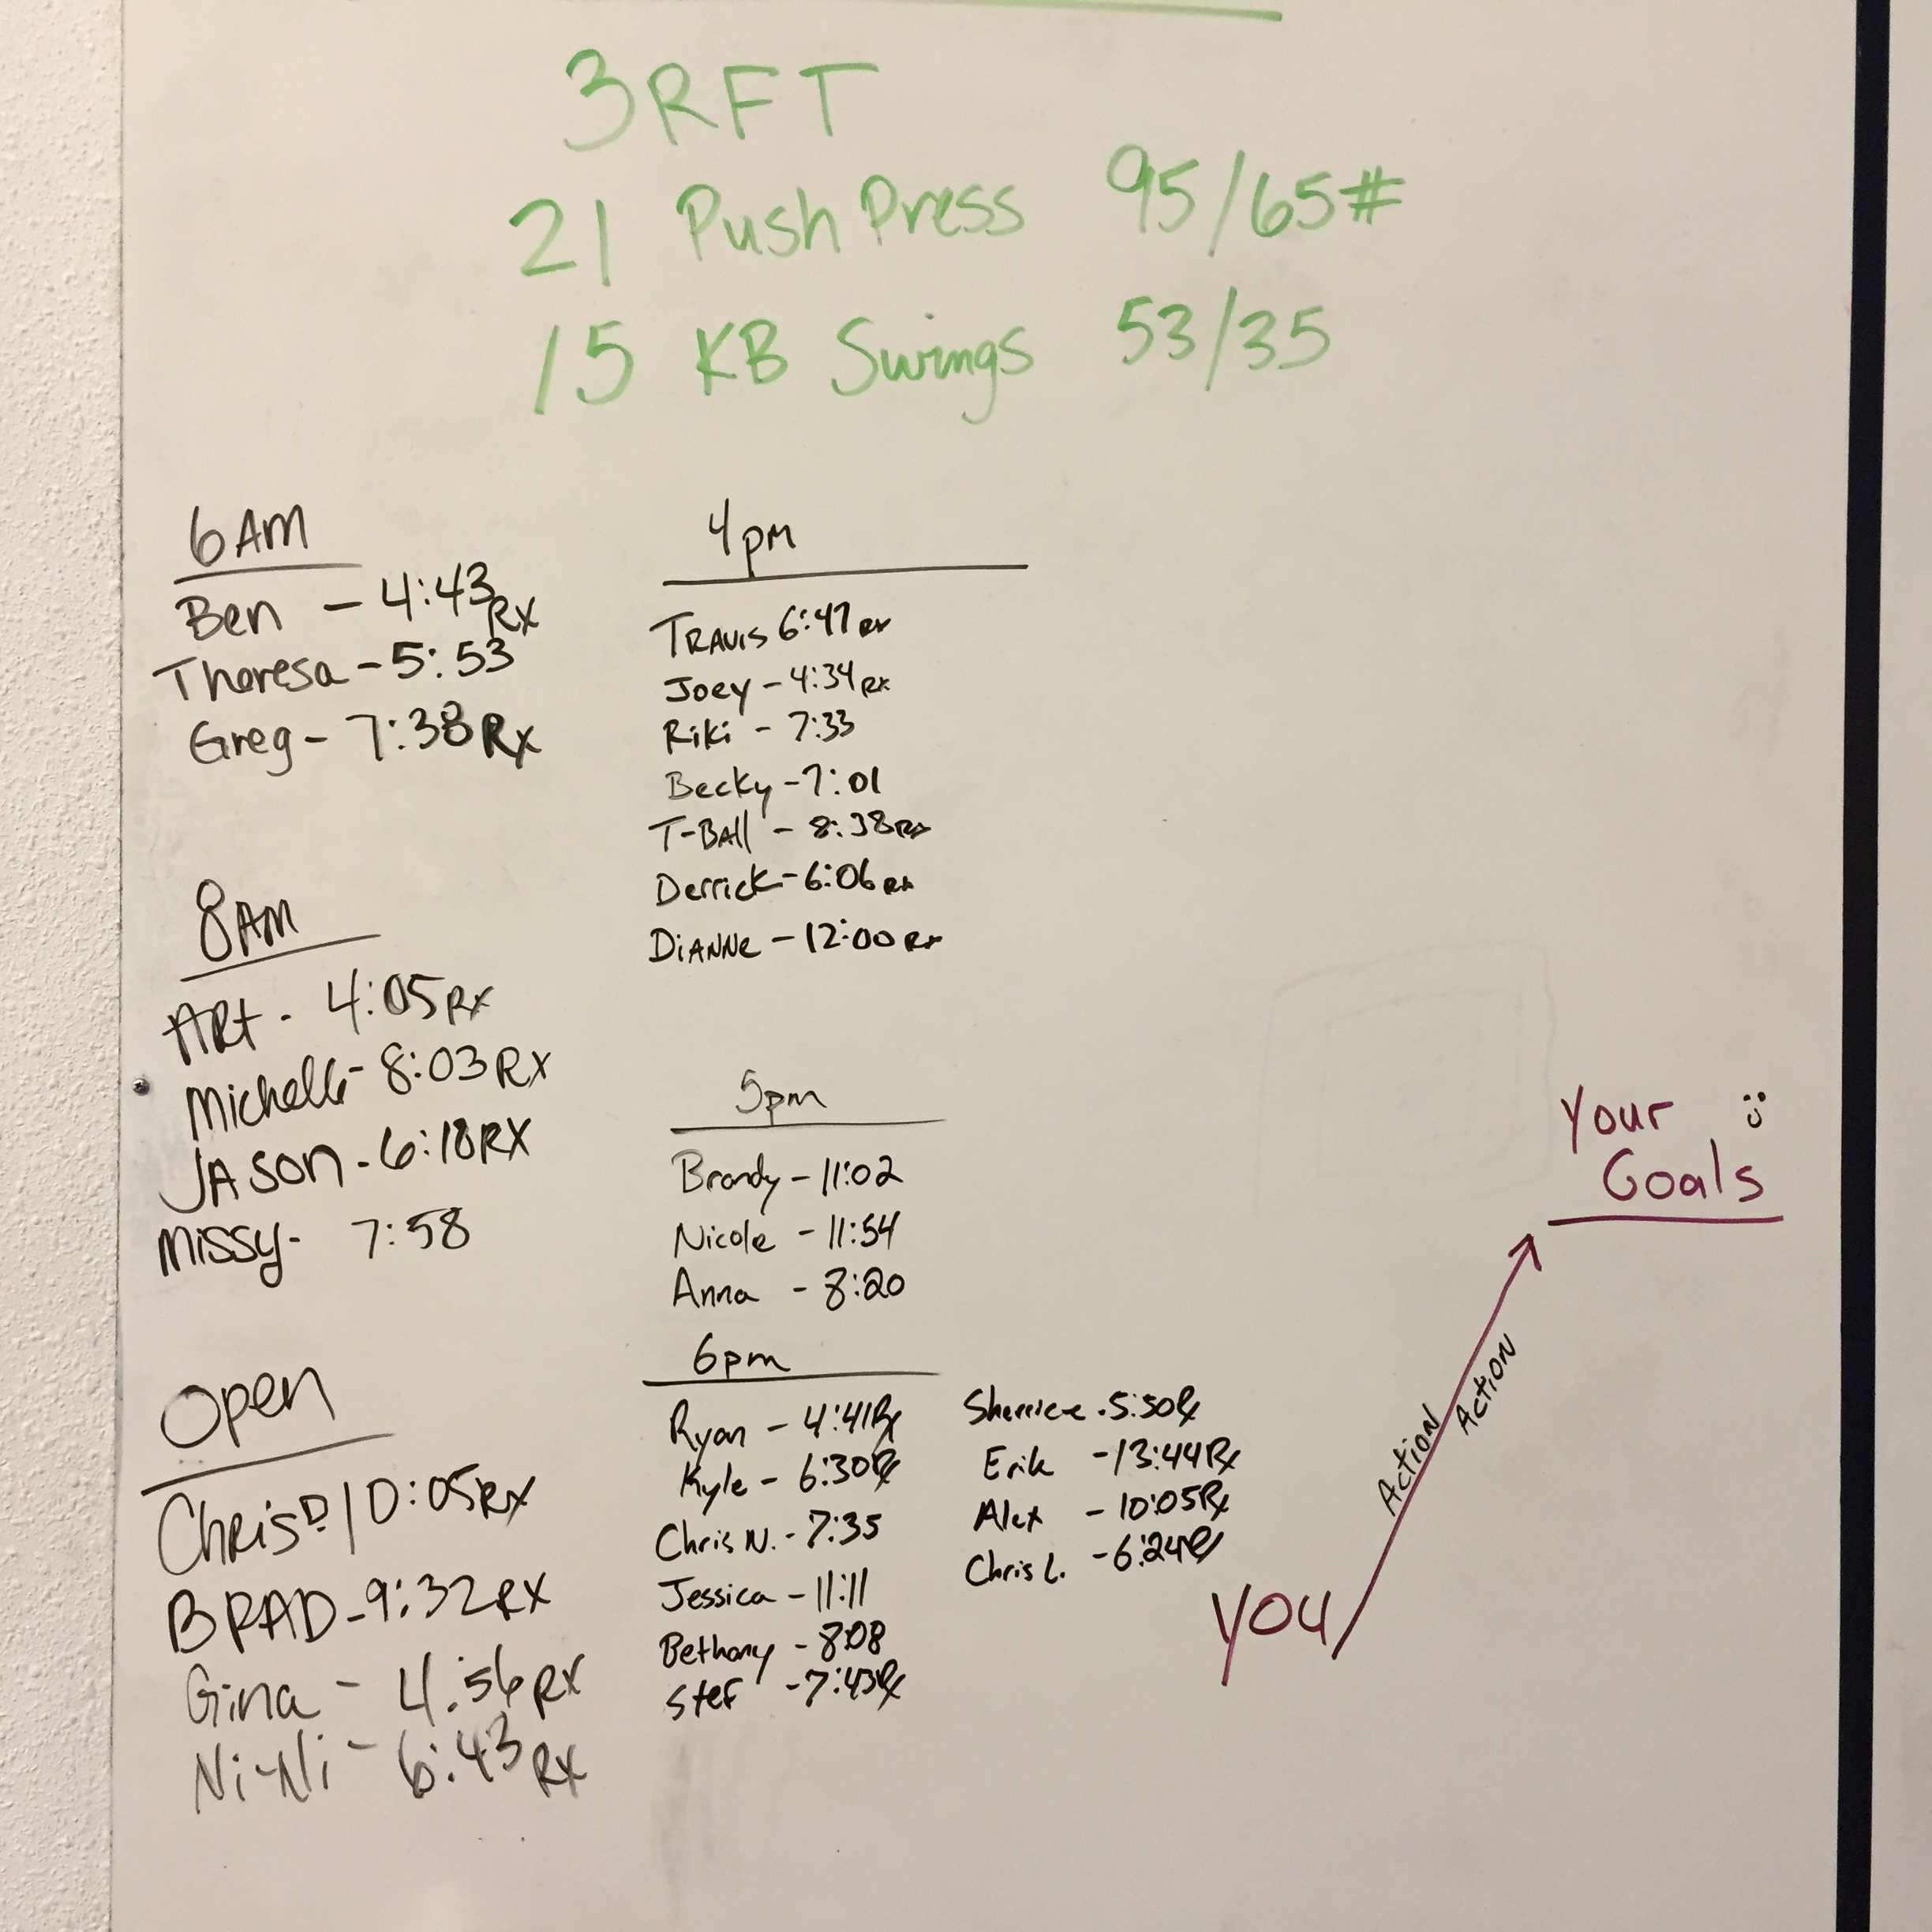 3RFT
21 Push Press 95/65#
15 KB Swings 53/35
6AM
Ben - 4:43 Rx
Theresa - 5:53
Greg - 7:38 Rx
8AM
ARt - 4:05 Rx
Michelle - 8:03 RX
JASON - 6:18 RX
Missy - 7:58
Open
Chris D 10:05 Rx
BRAD - 9:32 RX
Gina - 4:56 RX
Ni-Ni - 6:43 RX
4pm
TRAVIS 6:47 Rx
Joey - 4:34 Rx
Riki - 7:33
Becky - 7:01
T-BAll - 8:38 Rx
Derrick - 6:06 Rx
DiANNe - 12:00 Rx
5pm
Brandy - 11:02
Nicole - 11:54
Anna - 8:20
6pm
Ryan - 4:41 Rx
Kyle - 6:30 Rx
Chris N. - 7:35
Jessica - 11:11
Bethany - 8:08
Stef - 7:43 Rx
5:50 Rx
Erik - 13:44 Rx
Alex - 10:05 Rx
Chris L. - 6:24 Rx
Your :)
Goals
Action
Action
YOU